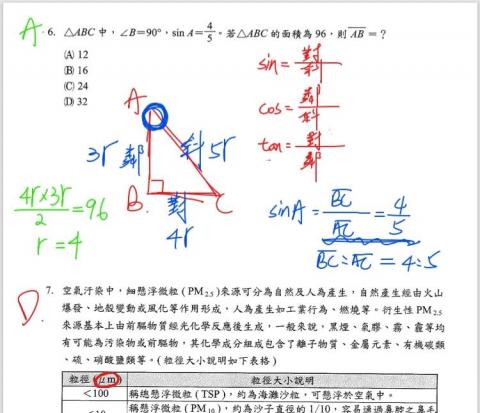 A. 6. △ABC 中，∠B=90°，sin A=4/5。若△ABC 的面積為 96，則 AB=？
(A) 12
(B) 16
(C) 24
(D) 32
sin = 對/斜
cos = 鄰/斜
tan = 對/鄰
A
3r 鄰 斜 5r
B. C
對
4r
4r×3r/2 = 96
r = 4
sinA = BC/AC = 4/5
BC : AC = 4 : 5
D. 7. 空氣汙染中，細懸浮微粒 ( PM2.5 )來源可分為自然及人為產生，自然產生經由火山
爆發、地殼變動或風化等作用形成，人為產生如工業行為、燃燒等。衍生性 PM2.5
來源基本上由前驅物質經光化學反應後生成，一般來說，黑煙、氣膠、霧、霾等均
有可能為污染物或前驅物，其化學成分組成包含了離子物質、金屬元素、有機碳類
、硫、硝酸鹽類等。( 粒徑大小說明如下表格 )
粒徑 (μm) 粒徑大小說明
<100 稱總懸浮微粒 (TSP)，約為海灘沙粒，可懸浮於空氣中。
稱懸浮微粒 (PM10)，約為沙子直徑的 1/10，容易通過鼻腔之鼻毛